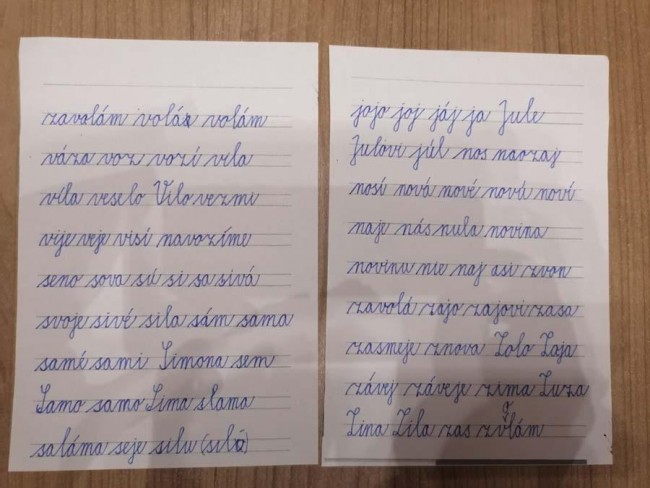 zavolám i voláz volám
váza voz vozí vila
víla veselo Vilo vezmi
vije veje visí navozíme
seno sova sú si sa sivá
svoje sivé sila sám sama
samé sami Simona sem
Samo samo Sima slama
saláma seje silu (siló)
jojo joj jáj ja Jule
Julovi júl nos naozaj
nosí nová nové novú noví
naje nás nula novina
novinu nie naj asi zvon
zavolá zajo zajovi zasa
zasmeje znova Zolo Zaja
závej záveje zima Zuza
Zina Zila zas zvolám